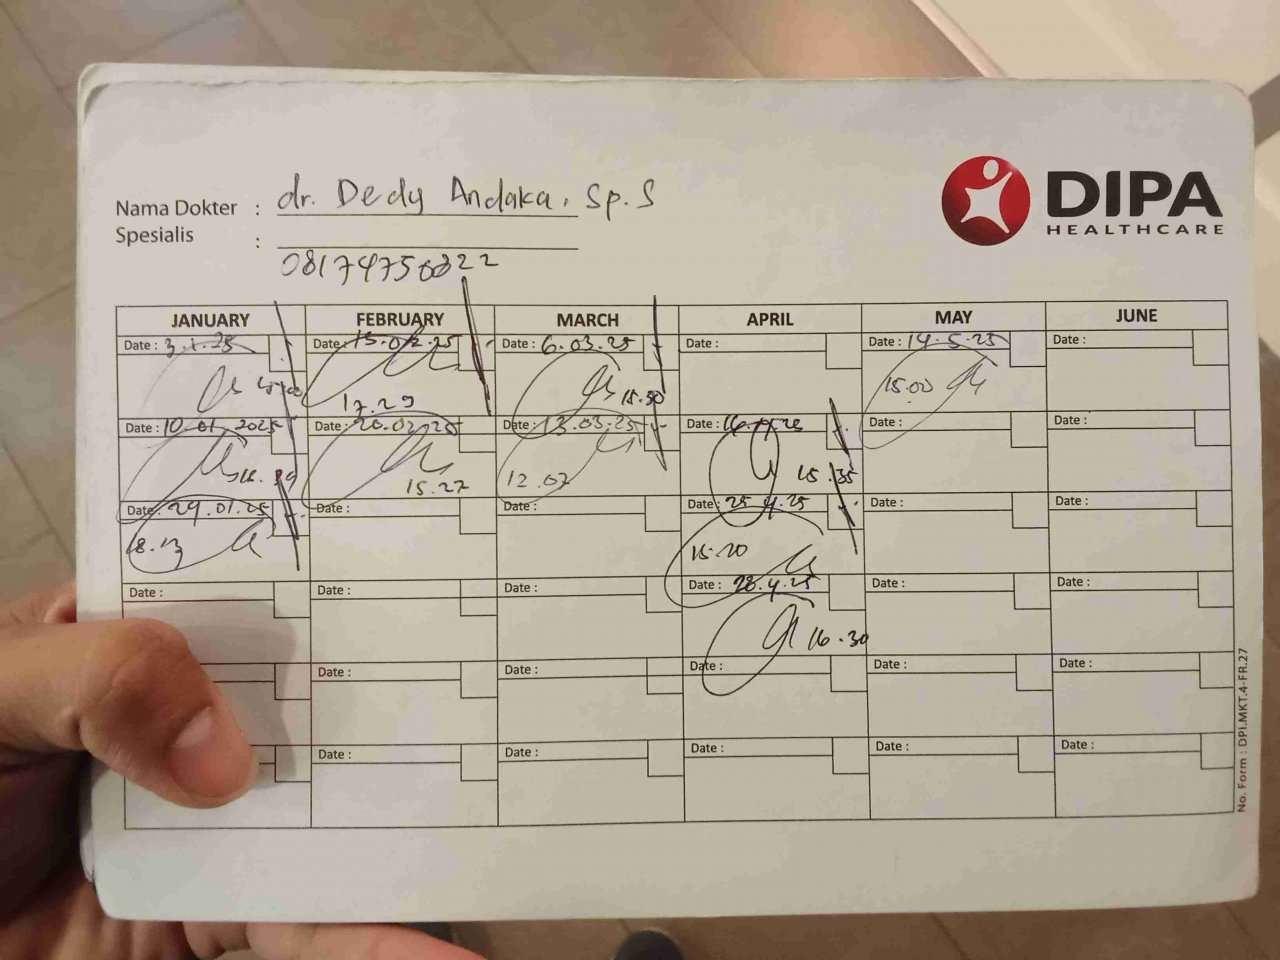 DIPA
HEALTHCARE
Nama Dokter : dr. Dedy Andaka, Sp.S
Spesialis :
JANUARY FEBRUARY MARCH APRIL MAY JUNE
Date : 3.1.25 Date : 15.02.25 Date : 6.03.25 Date : Date : 14.5.25 Date :
17.29 15.00
Date : 10.01.2025 Date : 20.02.25 Date : 13.03.25 Date : 16.4.25 Date : Date :
15.27 12.07 15.35
Date : 29.01.25 Date : Date : Date : 25.4.25 Date : Date :
18.13 15.20
Date : Date : Date : Date : 28.4.25 Date : Date :
16.30
Date : Date : Date : Date : Date :
Date : Date : Date : Date : Date :
No. Form : DPI.MKT.4-FR.27